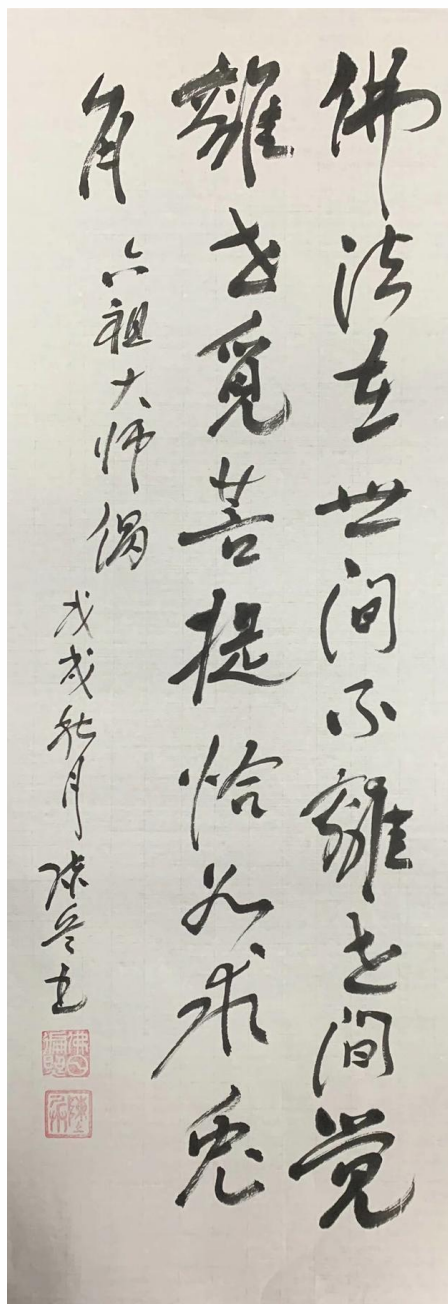 佛法在世间不離世间觉
離世觅菩提恰如求兎
角
六祖大师偈
戊戌秋月
陈兵书